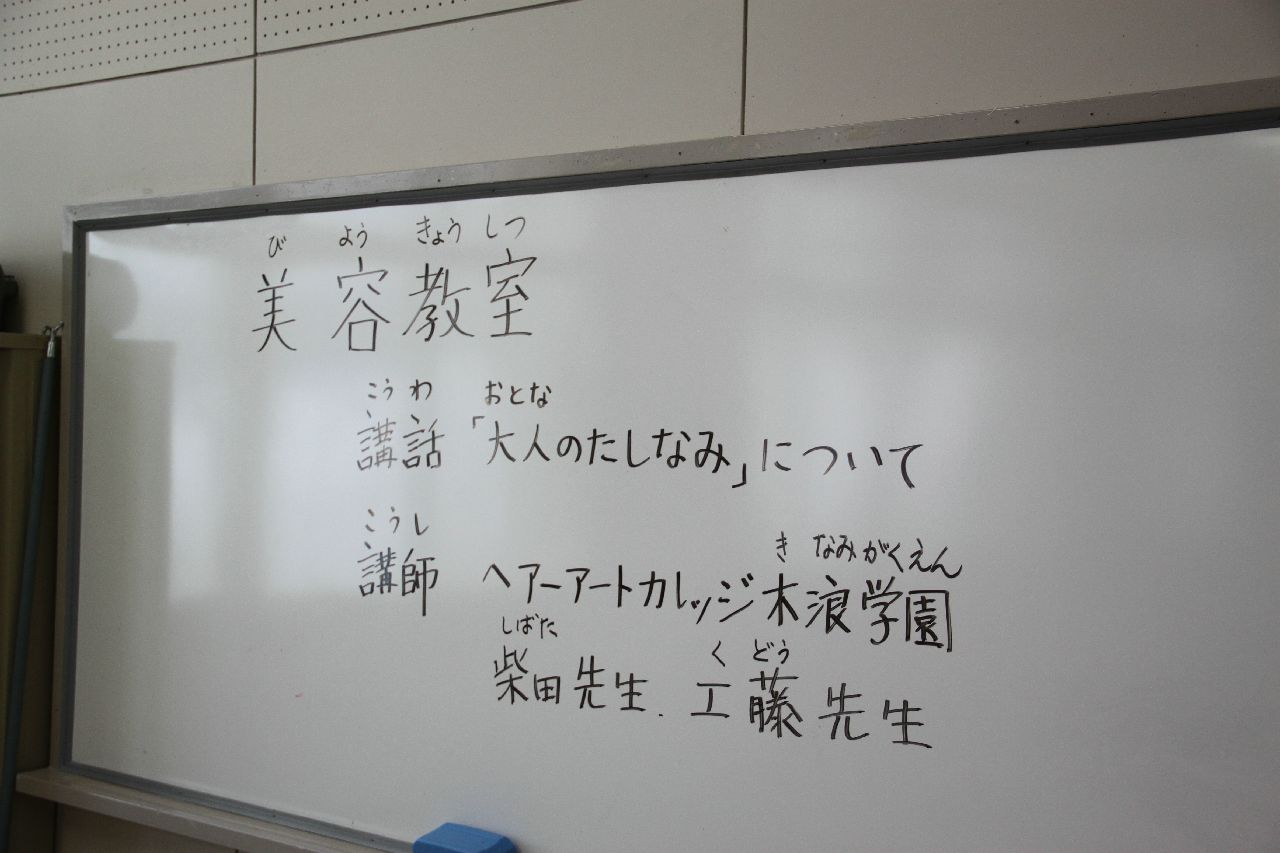 び よう きょう しつ
美容教室
こう わ おとな
講話「大人のたしなみ」について
こうし
講師 ヘアーアートカレッジ木浪学園
き なみ がくえん
しばた く どう
柴田先生. 工藤先生